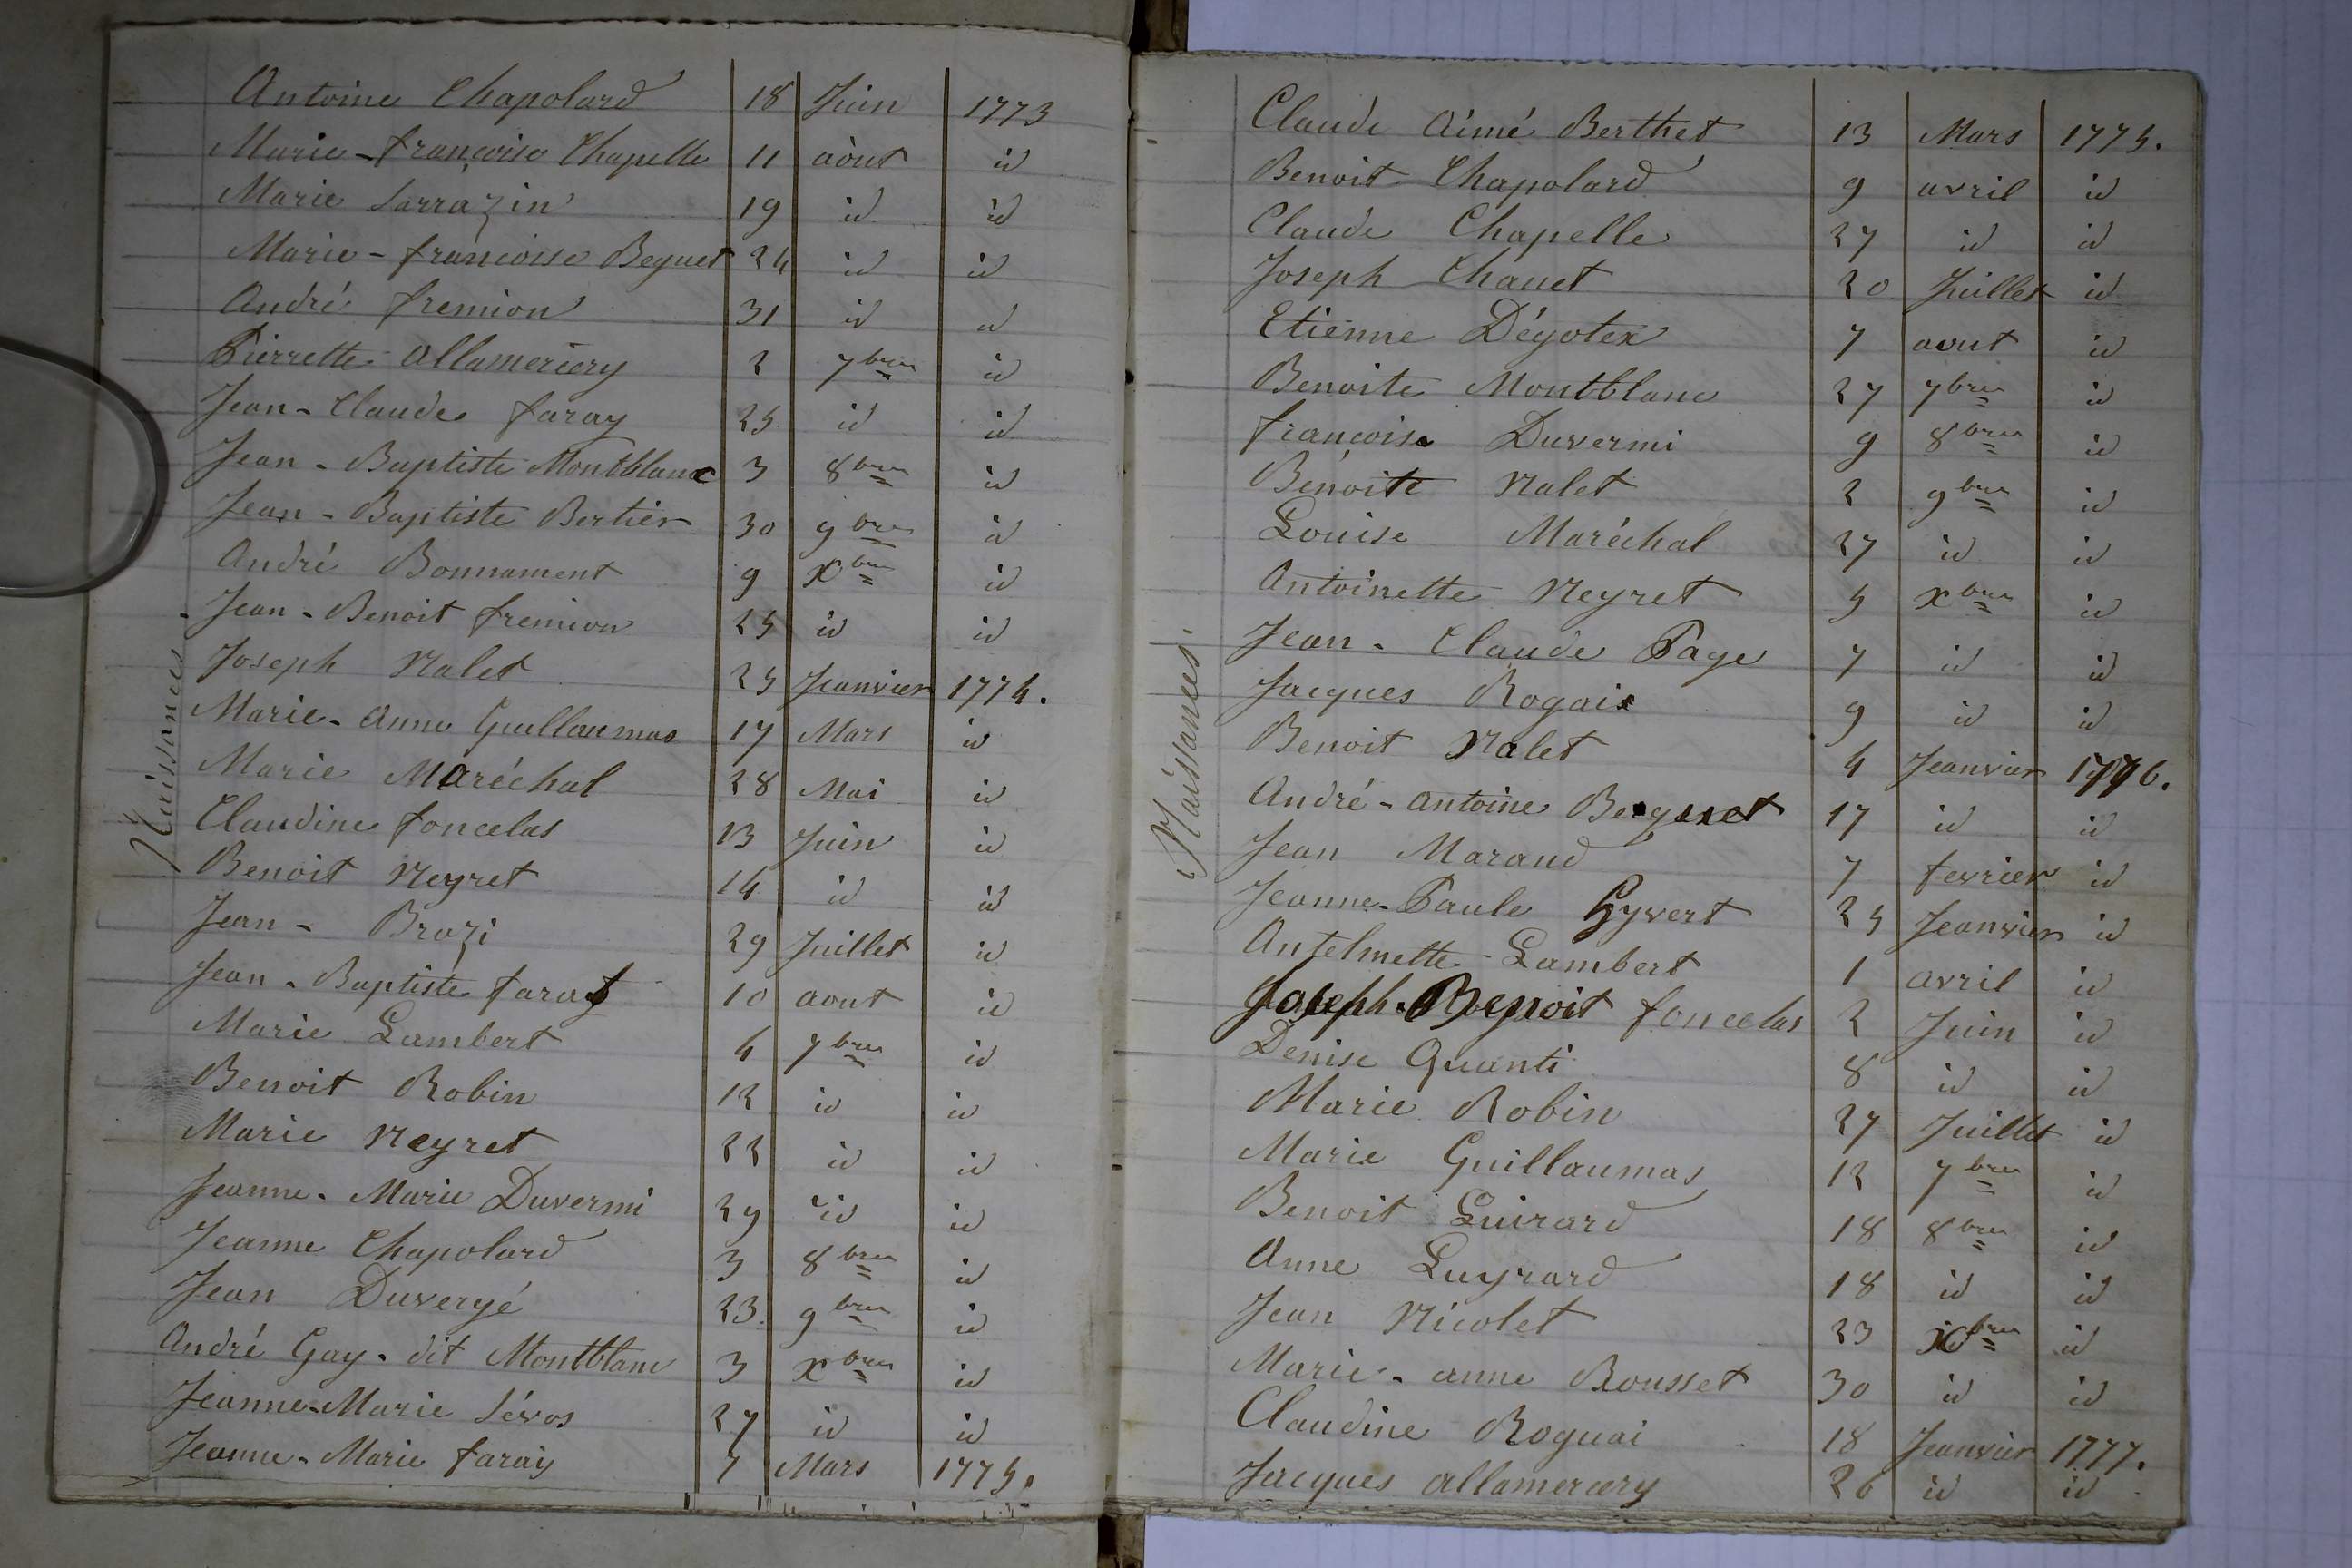 Naissances.
Antoine Chapolard 18 Juin 1773
Marie-françoise Chapelle 11 août id
Marie Sarrazin 19 id id
Marie-francoise Beguet 24 id id
André fremion 31 id id
Pierrette allamercery 2 7bre id
Jean-Claude faray 25 id id
Jean-Baptiste Montblanc 3 8bre id
Jean-Baptiste Bertier 30 9bre id
André Bonnament 9 Xbre id
Jean-Benoit fremion 25 id id
Joseph Nalet 25 Jeanvier 1774.
Marie-anne Guillaumas 17 Mars id
Marie Maréchal 28 Mai id
Claudine foncelas 13 Juin id
Benoit Neyret 14 id id
Jean-Brazi 29 Juillet id
Jean-Baptiste faray 10 aout id
Marie Lambert 4 7bre id
Benoit Robin 12 id id
Marie Neyret 22 id id
Jeanne-Marie Duvermi 29 id id
Jeanne Chapolard 3 8bre id
Jean Duvergé 23. 9bre id
André Gay-dit Montblanc 3 Xbre id
Jeanne-Marie Sévos 27 id id
Jeanne-Marie faray 7 Mars 1775.
Naissances.
Claude aimé Berthet 13 Mars 1775.
Benoit Chapolard 9 avril id
Claude Chapelle 27 id id
Joseph Chanet 20 Juillet id
Etienne Dégotex 7 aout id
Benoite Montblanc 27 7bre id
françoise Duvermi 9 8bre id
Benoite Nalet 2 9bre id
Louise Maréchal 27 id id
Antoinette Neyret 5 Xbre id
Jean-Claude Page 7 id id
Jacques Rogais 9 id id
Benoit Nalet 4 Jeanvier 1776.
André-antoine 17 id id
Jean Marand 7 fevrier id
Jeanne-Paule Gyvert 25 Jeanvier id
Antelmette-Lambert 1 avril id
Joseph-Benoit foncelas 2 Juin id
Denise Quanti 8 id id
Marie Robin 27 Juillet id
Marie Guillaumas 12 7bre id
Benoit Luirard 18 8bre id
Anne Luyrard 18 id id
Jean Nicolet 23 Xbre id
Marie-anne Rousset 30 id id
Claudine Roguai 18 Jeanvier 1777.
Jacques allamercery 26 id id